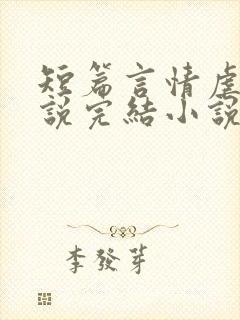 短篇言情虐
說完結小說
李發芽